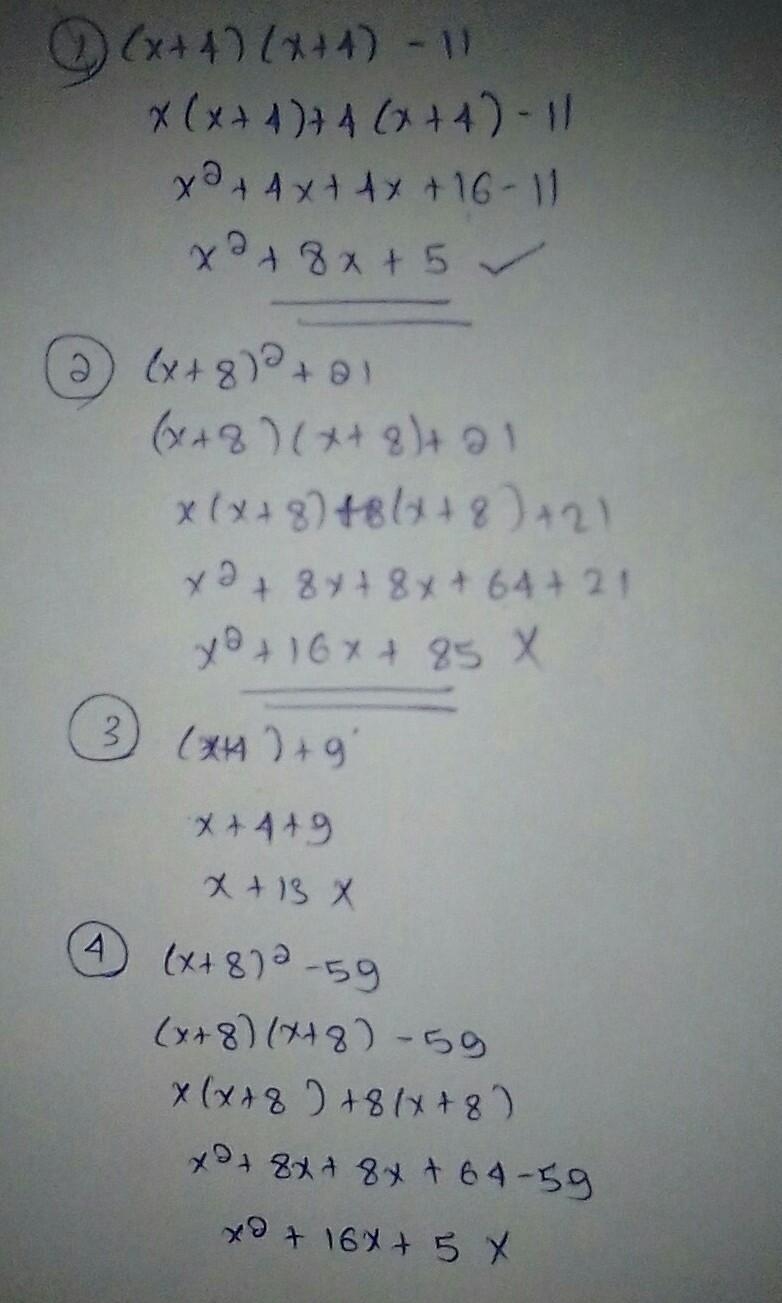 1 (x+4)(x+4) - 11
x(x+4)+4(x+4) - 11
x²+4x+4x+16-11
x²+8x+5 ✓
2 (x+8)²+21
(x+8)(x+8)+21
x(x+8)+8(x+8)+21
x²+8x+8x+64+21
x²+16x+85 X
3 (x+4)+9
x+4+9
x+13 X
4 (x+8)²-59
(x+8)(x+8)-59
x(x+8)+8(x+8)
x²+8x+8x+64-59
x²+16x+5 X